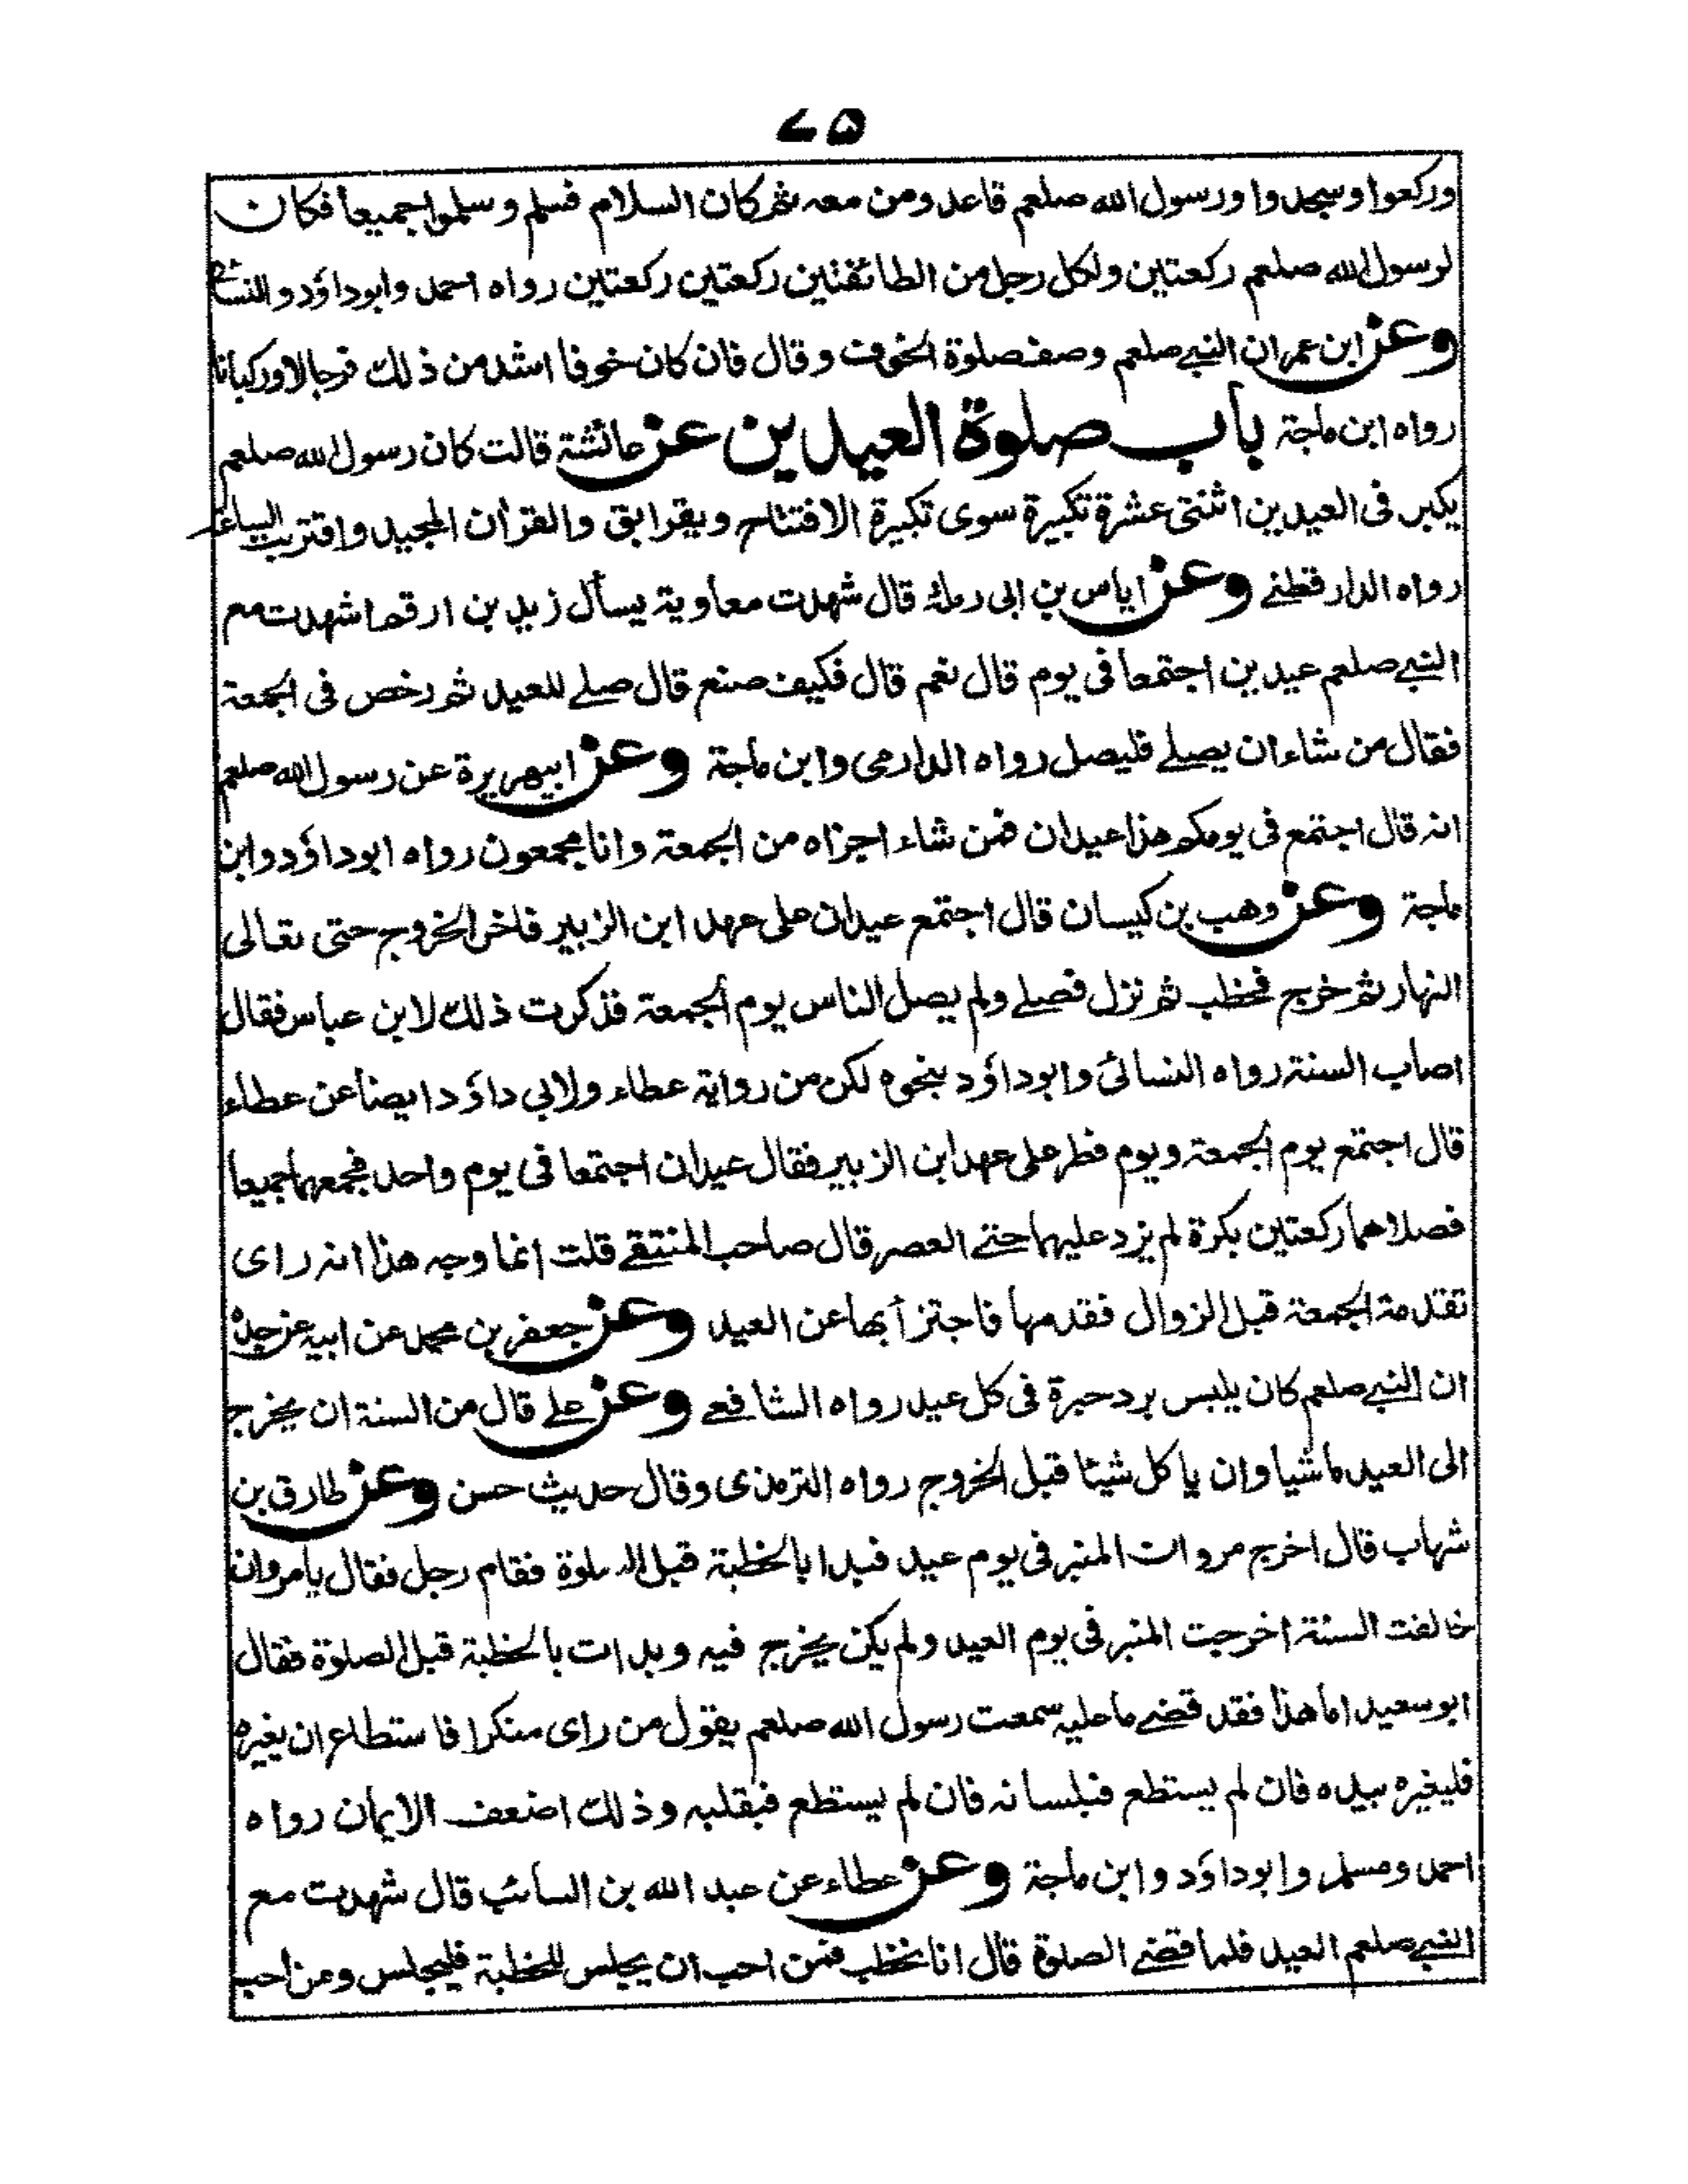 ۷۵
وركعوا وسجدوا ورسول الله صلعم قاعد ومن معه ثم كان السلام فسلم وسلموا جميعا فكان
لرسول الله صلعم ركعتين ولكل رجل من الطائفتين ركعتين ركعتين رواه احمد وابوداؤد والنسائى
وعن ابن عمر ان النبى صلعم وصف صلوة الخوف وقال فان كان خوفا اشد من ذلك فرجالا وركبانا
رواه ابن ماجة باب صلوة العيدين عن عائشة قالت كان رسول الله صلعم
يكبر فى العيدين اثنتى عشرة تكبيرة سوى تكبيرة الافتتاح ويقرا بق والقرأن المجيد واقتربت الساعة
رواه الدارقطنے وعن اياس بن ابى رملة قال شهدت معاوية يسأل زيد بن ارقم اشهدت مع
النبے صلعم عيدين اجتمعا فى يوم قال نعم قال فكيف صنع قال صلے للعيد ثم رخص فى الجمعة
فقال من شاء ان يصلے فليصل رواه الدارمى وابن ماجة وعن ابيهريرة عن رسول الله صلعم
انه قال اجتمع فى يومكم هذا عيدان فمن شاء اجزاه من الجمعة وانا مجمعون رواه ابوداؤد وابن
ماجة وعن وهب بن كيسان قال اجتمع عيدان على عهد ابن الزبير فاخر الخروج حتى تعالى
النهار ثم خرج فخطب ثم نزل فصلے ولم يصل الناس يوم الجمعة فذكرت ذلك لابن عباس فقال
اصاب السنة رواه النسائى وابوداؤد بنحوه لكن من رواية عطاء ولابي داؤد ايضا عن عطاء
قال اجتمع يوم الجمعة ويوم فطر على عهد ابن الزبير فقال عيدان اجتمعا فى يوم واحد فجمعهما جميعا
فصلاهما ركعتين بكرة لم يزد عليهما حتے العصر قال صاحب المنتقے قلت انما وجه هذا انه راى
تقدمة الجمعة قبل الزوال فقدمها فاجتزأ بها عن العيد وعن جعفر بن محمد عن ابيه عن جده
ان النبے صلعم كان يلبس برد حبرة فى كل عيد رواه الشافعے وعن علے قال من السنة ان يخرج
الى العيد ماشيا وان ياكل شيئا قبل الخروج رواه الترمذى وقال حديث حسن وعن طارق بن
شهاب قال اخرج مروان المنبر فى يوم عيد فبدا بالخطبة قبل الصلوة فقام رجل فقال يا مروان
خالفت السنة اخرجت المنبر فى يوم العيد ولم يكن يخرج فيه وبدات بالخطبة قبل الصلوة فقال
ابوسعيد اما هذا فقد قضے ما عليه سمعت رسول الله صلعم يقول من راى منكرا فاستطاع ان يغيره
فليغيره بيده فان لم يستطع فبلسانه فان لم يستطع فبقلبه وذلك اضعف الايمان رواه
احمد ومسلم وابوداؤد وابن ماجة وعن عطاء عن عبد الله بن السائب قال شهدت مع
النبے صلعم العيد فلما قضے الصلوة قال انا نخطب فمن احب ان يجلس للخطبة فليجلس ومن احب